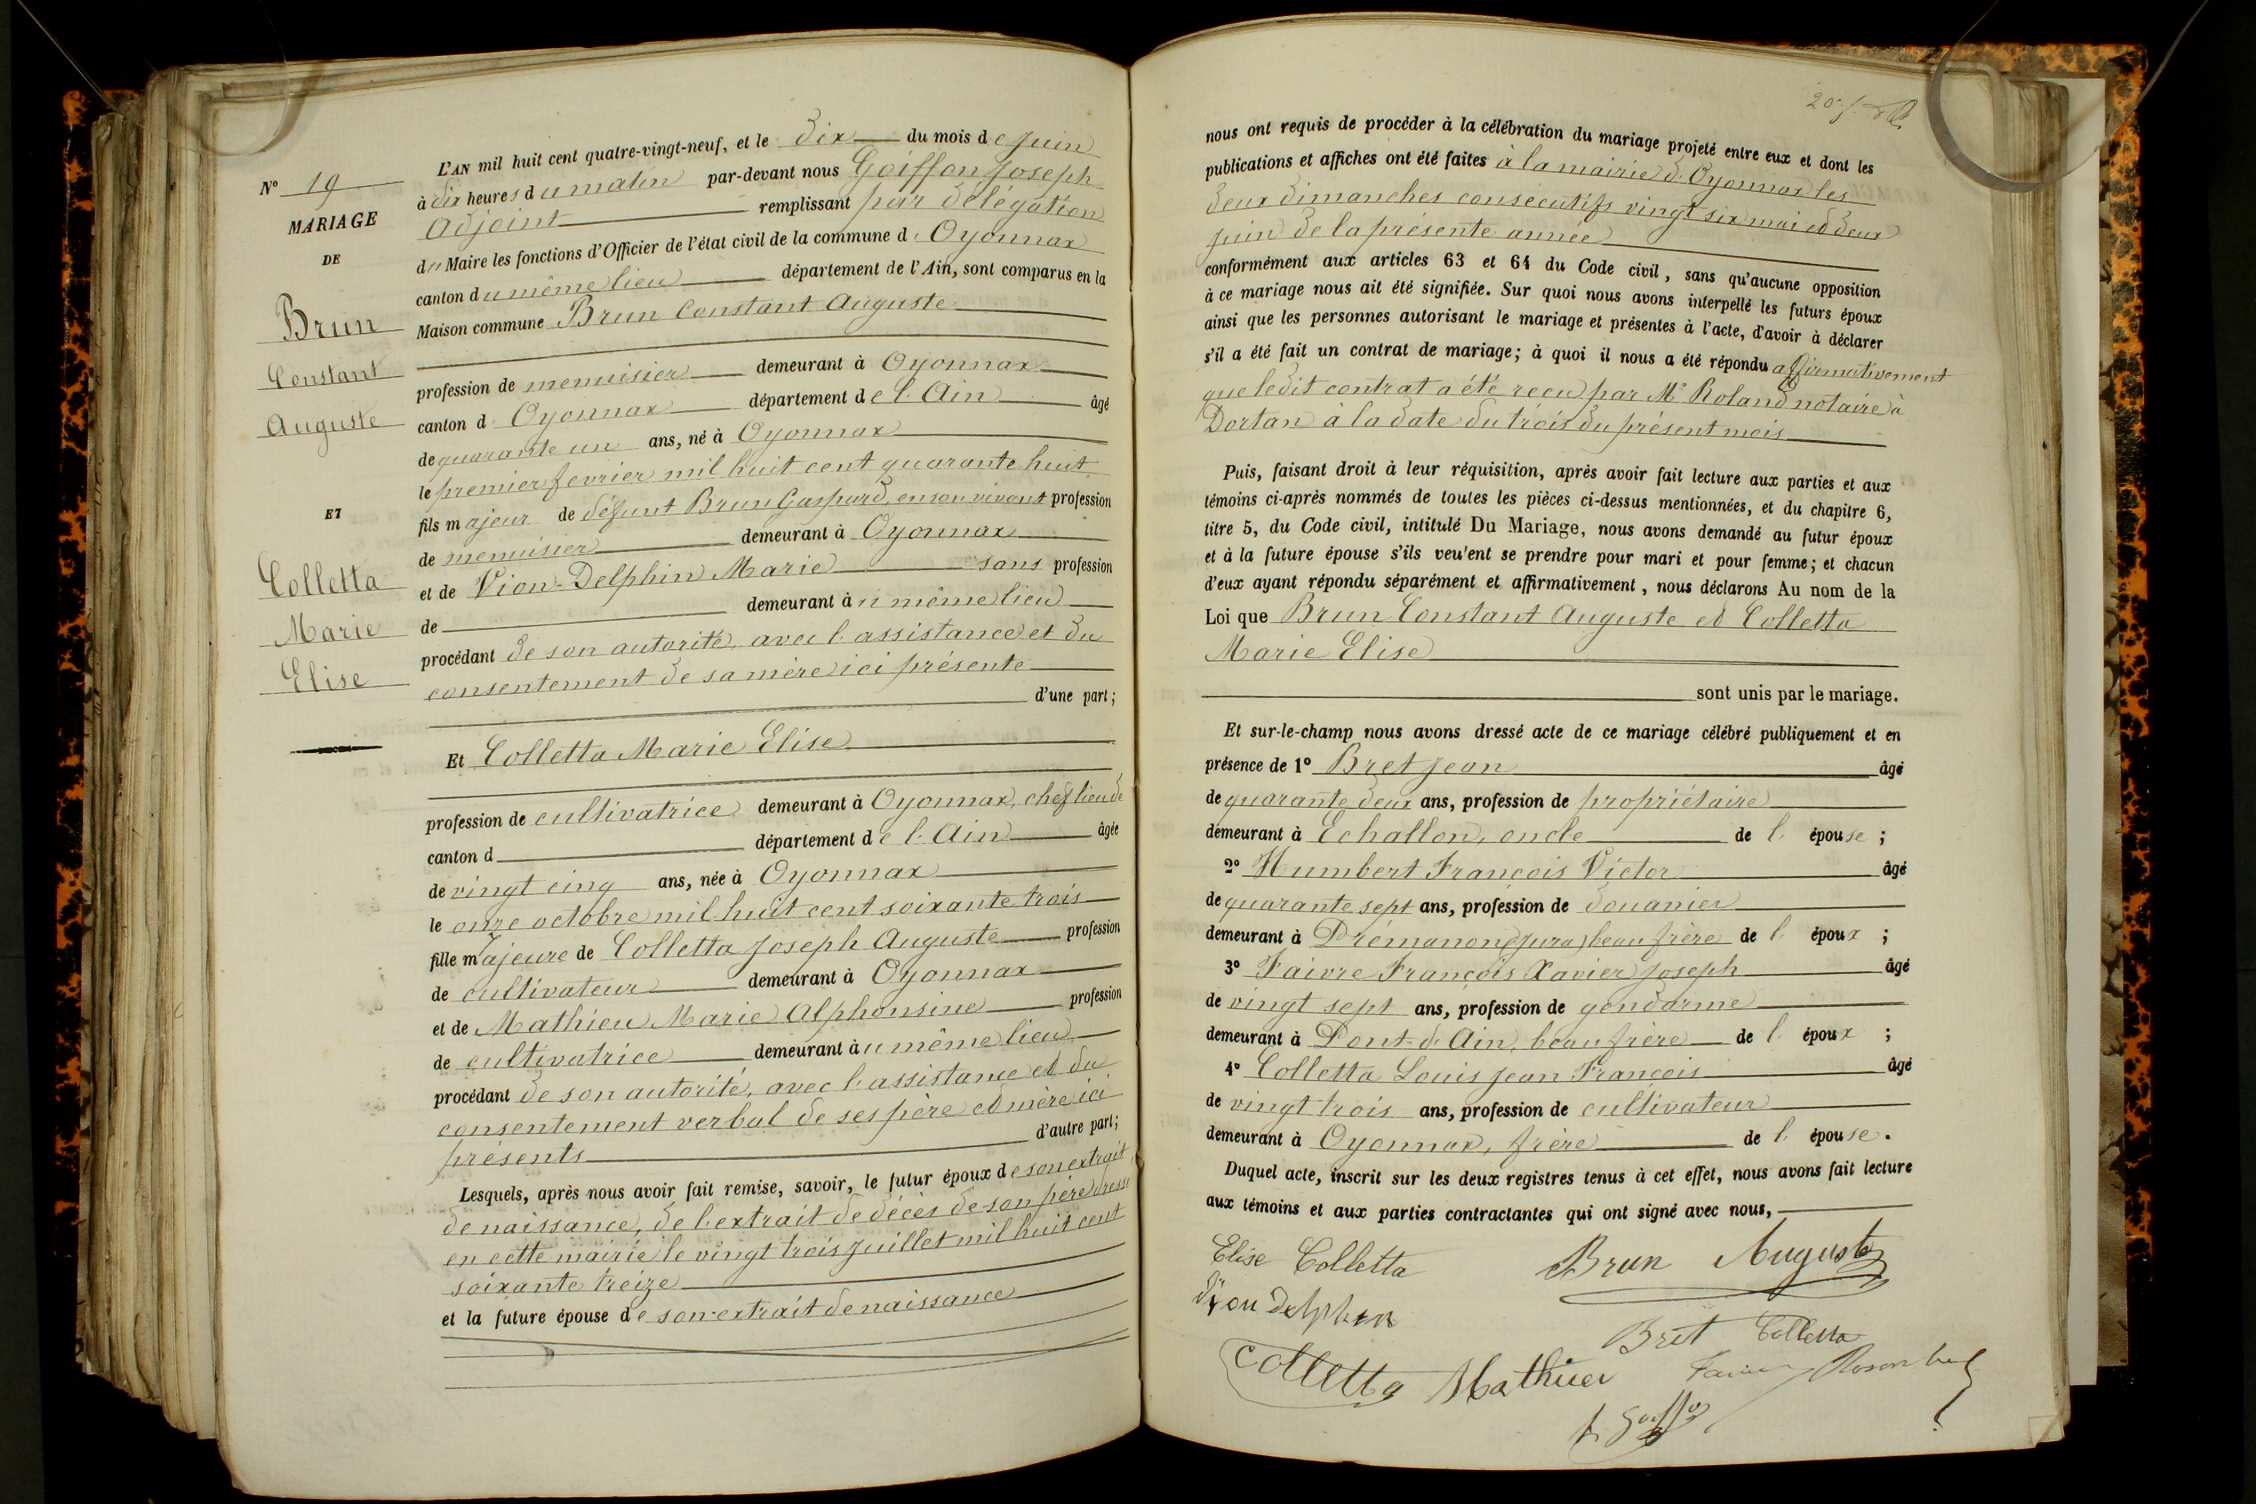 N° 19
MARIAGE
DE
Brun
Constant
Auguste
ET
Colletta
Marie
Elise
L'AN mil huit cent quatre-vingt-neuf, et le dix du mois de juin
à dix heures du matin par-devant nous Goiffon Joseph
Adjoint remplissant par délégation
du Maire les fonctions d'Officier de l'état civil de la commune d'Oyonnax
canton du même lieu département de l'Ain, sont comparus en la
Maison commune Brun Constant Auguste
profession de menuisier demeurant à Oyonnax
canton d'Oyonnax département de l'Ain âgé
de quarante un ans, né à Oyonnax
le premier fevrier mil huit cent quarante huit
fils majeur de défunt Brun Gaspard, en son vivant profession
de menuisier demeurant à Oyonnax
et de Vion-Delphin Marie sans profession
de demeurant au même lieu
procédant de son autorité, avec l'assistance et du
consentement de sa mère ici présente
d'une part;
Et Colletta Marie Elise
profession de cultivatrice demeurant à Oyonnax, chef lieu de
canton d département de l'Ain âgée
de vingt cinq ans, née à Oyonnax
le onze octobre mil huit cent soixante trois
fille majeure de Colletta Joseph Auguste profession
de cultivateur demeurant à Oyonnax
et de Mathieu Marie Alphonsine profession
de cultivatrice demeurant au même lieu
procédant de son autorité, avec l'assistance et du
consentement verbal de ses père et mère ici
présents d'autre part;
Lesquels, après nous avoir fait remise, savoir, le futur époux de son extrait
de naissance, de l'extrait de décès de son père dressé
en cette mairie le vingt trois juillet mil huit cent
soixante treize
et la future épouse de son extrait de naissance
nous ont requis de procéder à la célébration du mariage projeté entre eux et dont les
publications et affiches ont été faites à la mairie d'Oyonnax les
deux dimanches consécutifs vingt six mai et deux
juin de la présente année
conformément aux articles 63 et 64 du Code civil, sans qu'aucune opposition
à ce mariage nous ait été signifiée. Sur quoi nous avons interpellé les futurs époux
ainsi que les personnes autorisant le mariage et présentes à l'acte, d'avoir à déclarer
s'il a été fait un contrat de mariage; à quoi il nous a été répondu affirmativement
que ledit contrat a été reçu par Me Roland notaire à
Dortan à la date du trois du présent mois
Puis, faisant droit à leur réquisition, après avoir fait lecture aux parties et aux
témoins ci-après nommés de toutes les pièces ci-dessus mentionnées, et du chapitre 6,
titre 5, du Code civil, intitulé Du Mariage, nous avons demandé au futur époux
et à la future épouse s'ils veu'ent se prendre pour mari et pour femme; et chacun
d'eux ayant répondu séparément et affirmativement, nous déclarons Au nom de la
Loi que Brun Constant Auguste et Colletta
Marie Elise
sont unis par le mariage.
Et sur-le-champ nous avons dressé acte de ce mariage célébré publiquement et en
présence de 1° Bret Jean âgé
de quarante deux ans, profession de propriétaire
demeurant à Echallon, oncle de l'épouse;
2° Humbert François Victor âgé
de quarante sept ans, profession de douanier
demeurant à Prémanon (Jura) beau frère de l'époux;
3° Faivre François Xavier Joseph âgé
de vingt sept ans, profession de gendarme
demeurant à Pont-d'Ain, beau frère de l'époux;
4° Colletta Louis Jean François âgé
de vingt trois ans, profession de cultivateur
demeurant à Oyonnax, frère de l'épouse.
Duquel acte, inscrit sur les deux registres tenus à cet effet, nous avons fait lecture
aux témoins et aux parties contractantes qui ont signé avec nous,
Elise Colletta Brun Auguste
Vion Delphin
Bret Colletta
Colletta Mathieu
J. Goiffon